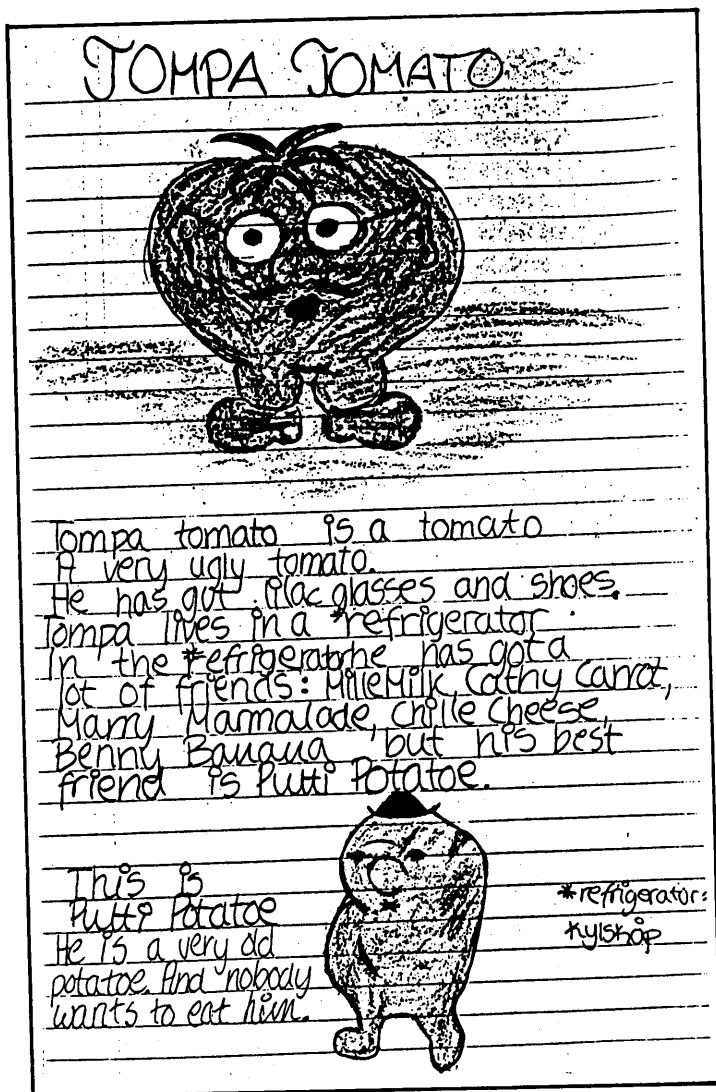 TOMPA TOMATO
Tompa tomato is a tomato
A very ugly tomato.
He has got lilac glasses and shoes.
Tompa lives in a *refrigerator.
In the *refrigerator he has got a
lot of friends: Mille Milk, Cathy Carrot,
Marry Marmalade, Chille Cheese,
Benny Banana, but his best
friend is Putti Potatoe.
This is
Putti Potatoe
He is a very old
potatoe. And nobody
wants to eat him.
*refrigerator:
kylskåp